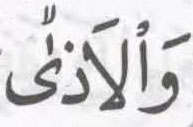 وَٱلاَذَىٰ